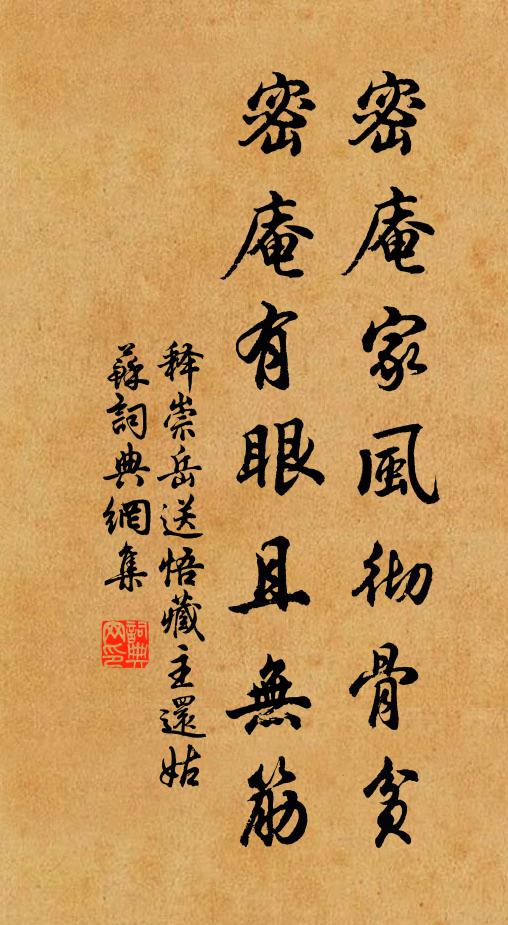 密庵家風彻骨貧
密庵有眼且無筋
释崇岳送悟藏主還姑
蘇詞典網集
詞典
网印